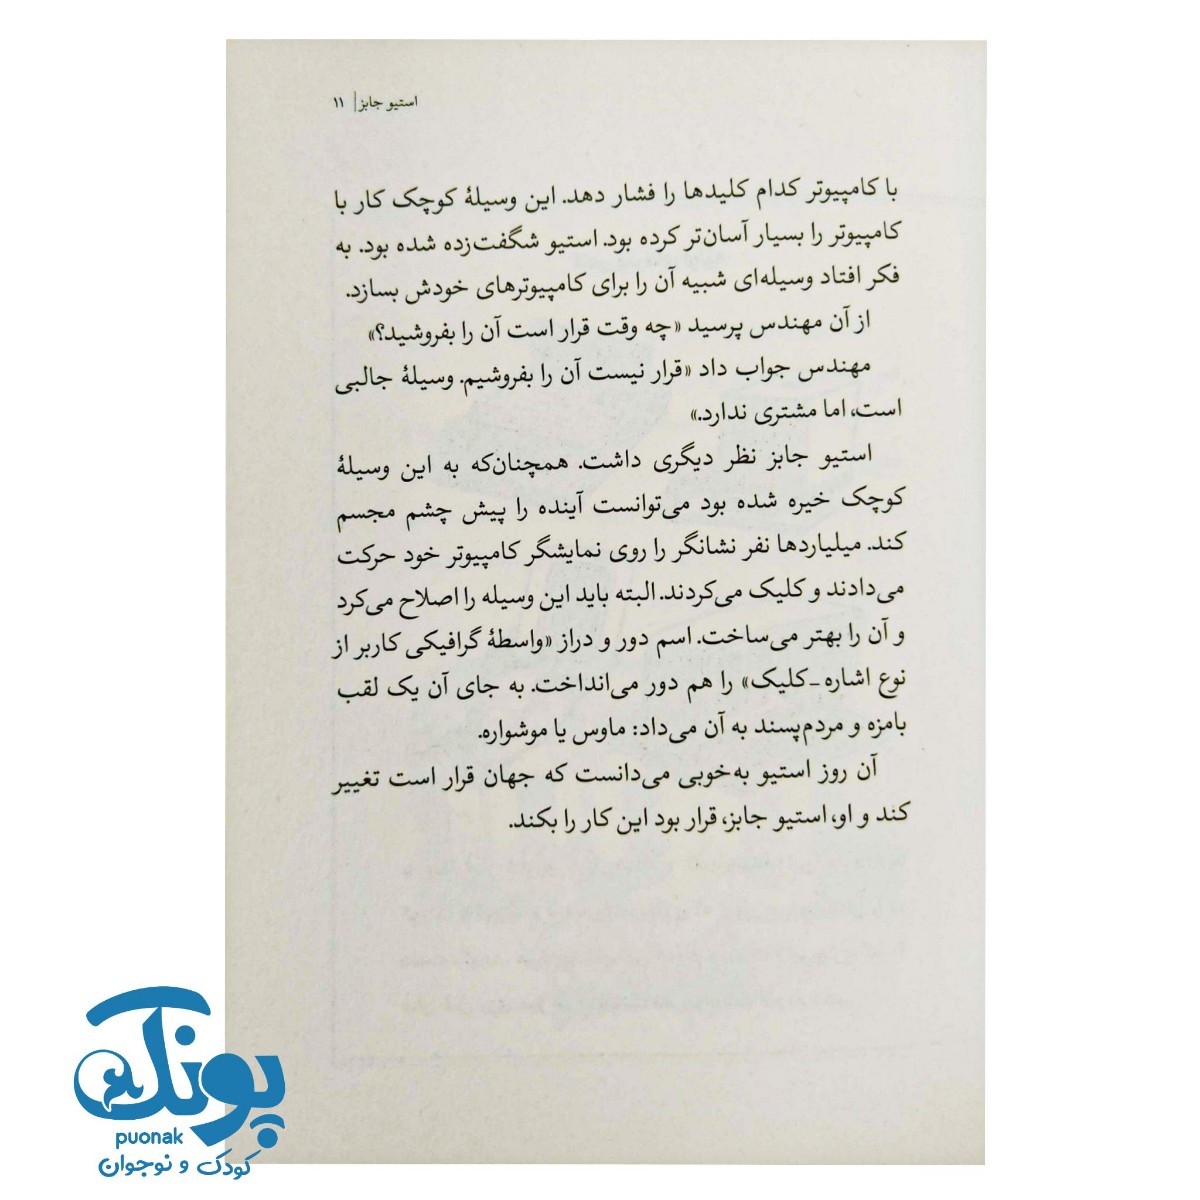 استیو جابز | ۱۱
با کامپیوتر کدام کلیدها را فشار دهد. این وسیلهٔ کوچک کار با
کامپیوتر را بسیار آسان‌تر کرده بود. استیو شگفت‌زده شده بود. به
فکر افتاد وسیله‌ای شبیه آن را برای کامپیوترهای خودش بسازد.
از آن مهندس پرسید «چه وقت قرار است آن را بفروشید؟»
مهندس جواب داد «قرار نیست آن را بفروشیم. وسیلهٔ جالبی
است، اما مشتری ندارد.»
استیو جابز نظر دیگری داشت. همچنان‌که به این وسیلهٔ
کوچک خیره شده بود می‌توانست آینده را پیش چشم مجسم
کند. میلیاردها نفر نشانگر را روی نمایشگر کامپیوتر خود حرکت
می‌دادند و کلیک می‌کردند. البته باید این وسیله را اصلاح می‌کرد
و آن را بهتر می‌ساخت. اسم دور و دراز «واسطهٔ گرافیکی کاربر از
نوع اشاره-کلیک» را هم دور می‌انداخت. به جای آن یک لقب
بامزه و مردم‌پسند به آن می‌داد: ماوس یا موشواره.
آن روز استیو به‌خوبی می‌دانست که جهان قرار است تغییر
کند و او، استیو جابز، قرار بود این کار را بکند.
پونک
puonak
کودک و نوجوان